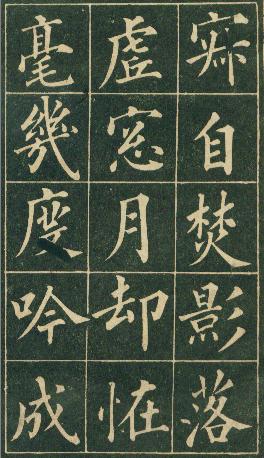 自焚影落
虚窓月却恠
毫幾度吟成